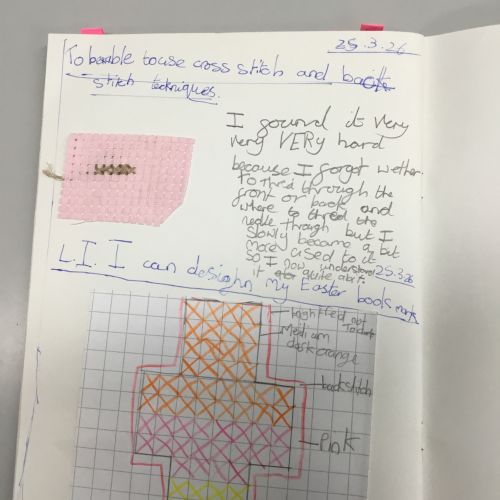 25.3.26
To be able to use cross stitch and back
stitch techniques.
I gound it very
very VERY hard
because I forgot wether
to thred through the
front or back and
where to thred the
neдle through but I
slowly became a bit
more used to it
so I now understand
it quite abit.
25.3.26
L.I. I can design my Easter book mark
bright red not
To dark
Medium
dark orange
backstitch
Pink